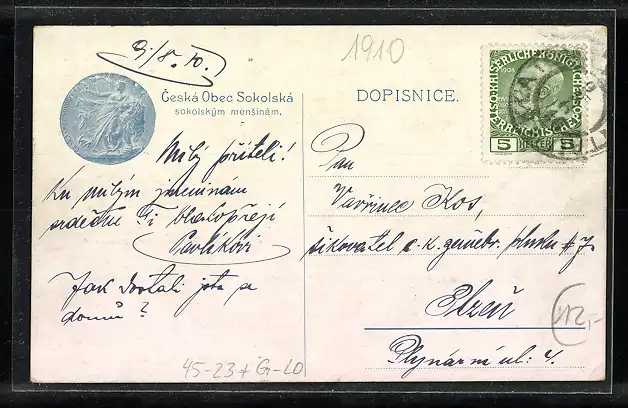 9./8. 10.
1910
Česká Obec Sokolská
sokolským menšinám.
DOPISNICE.
5 HELLER 5
Milý příteli!
Ku milým jmeninám
srdečně Ti blahopřejí
Pavlíkovi
Jak dostali jste se
domů?
Pan
Vavřinec Kos,
šikovatel c. k. zeměbr. pluku # 7.
Plzeň
Plynární ul: 4.
12,-
45-23 + G-LO